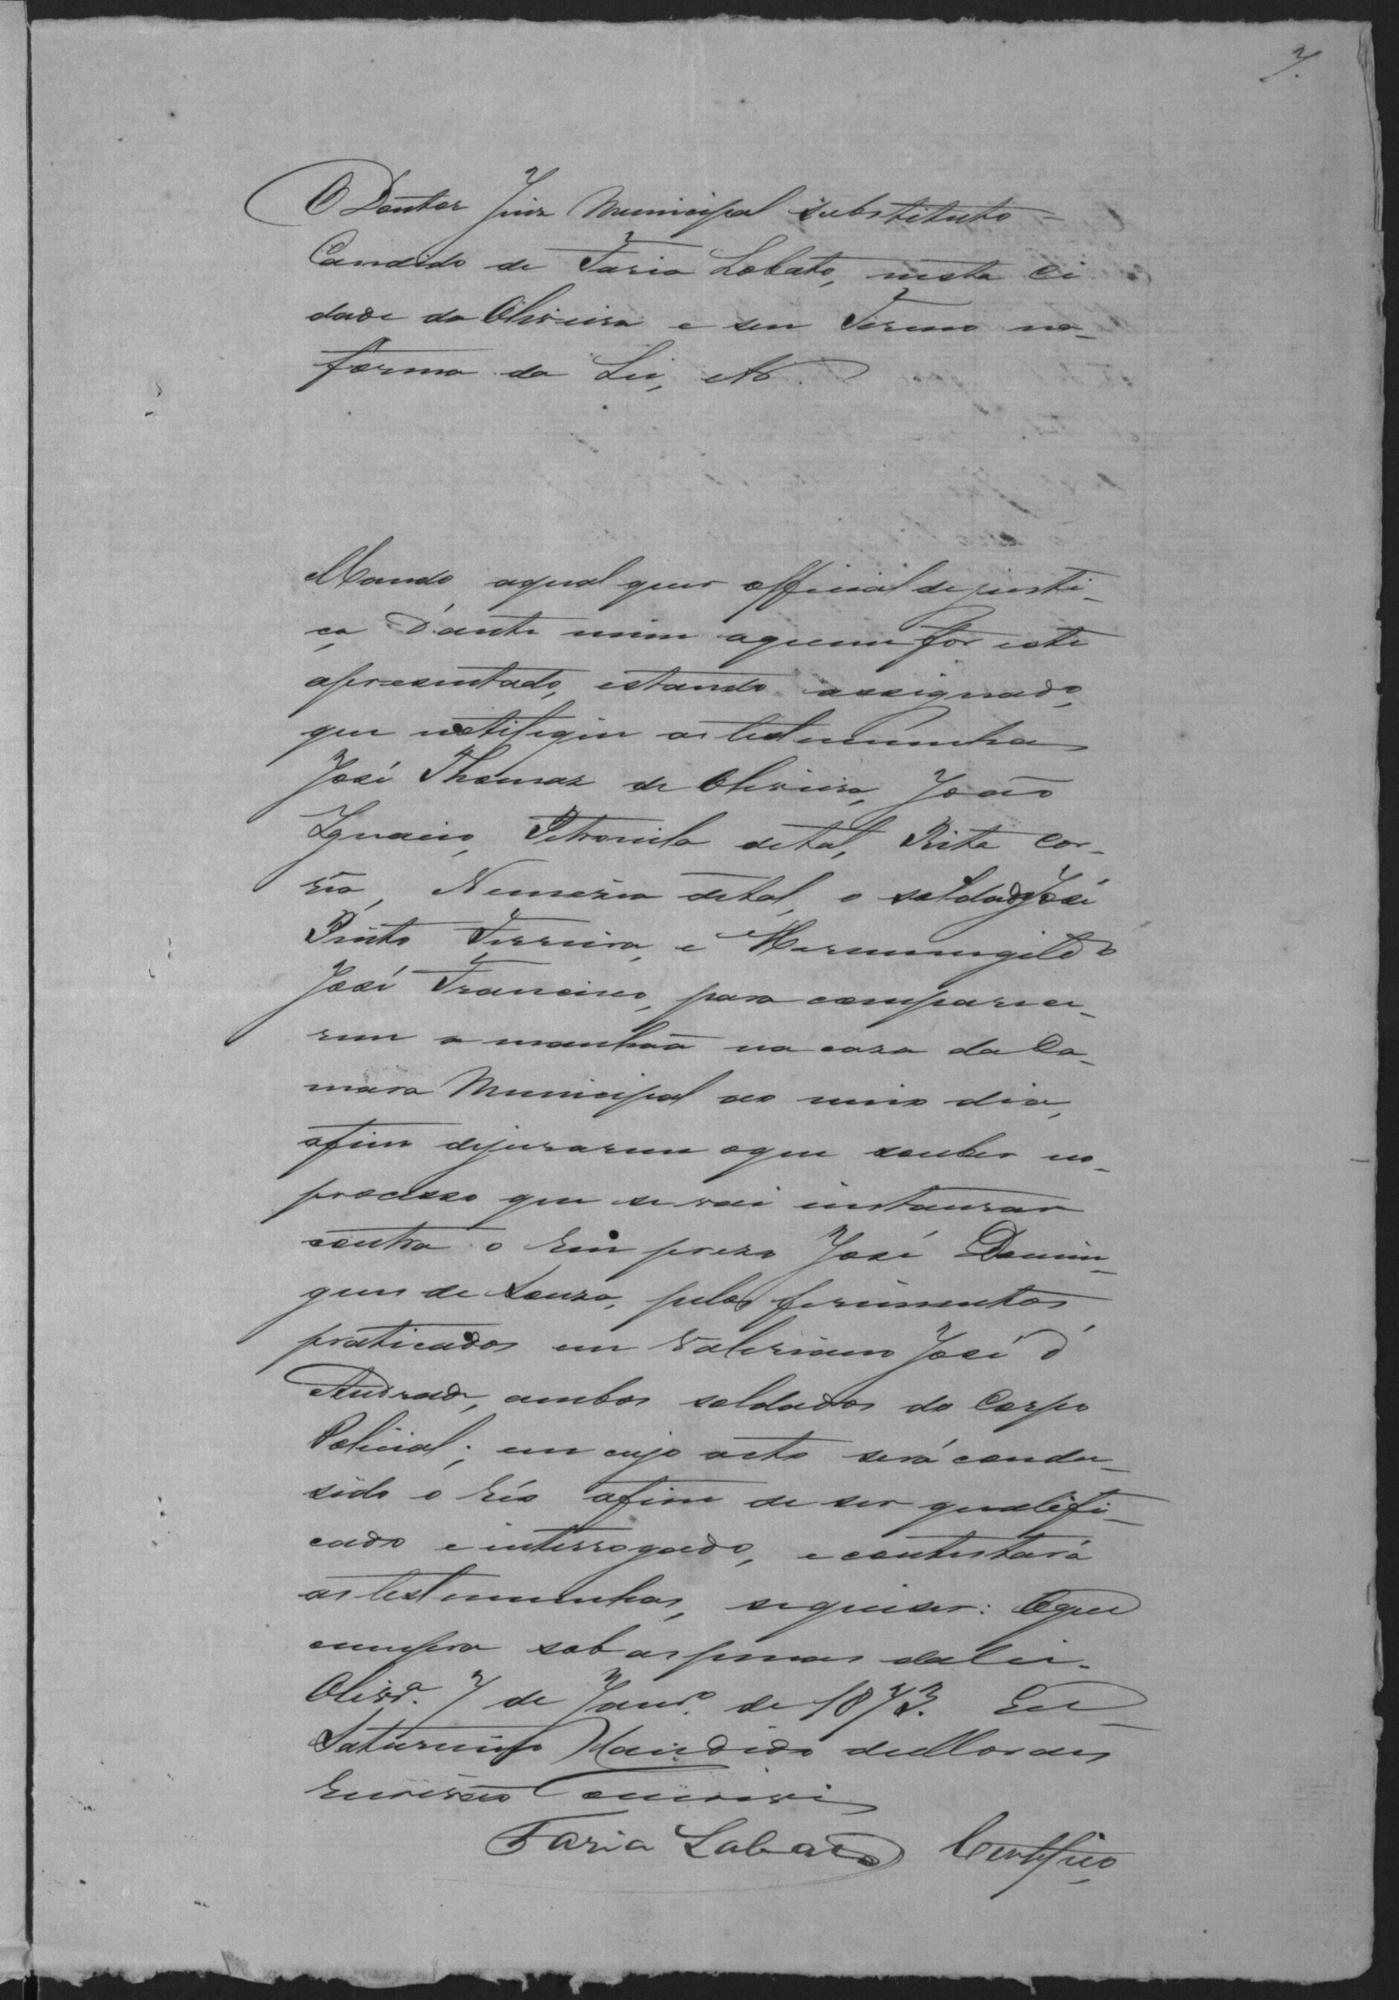 7.
O Doutor Juiz Municipal substituto
Candido de Faria Lobato, nesta Ci
dade da Oliveira e seu Termo na
forma da Lei, etc.
Mando aqual quer official de justi-
ça d'ante mim aquem for este
apresentado, estando assignado,
que notifiqui as testemunhas
José Thomaz de Oliveira, João
Ignacio, Petronila de tal, Rita Cor-
rêa, Nemezia de tal, o soldado José
Pinto Ferreira, e Hermenegildo
José Francisco, para comparece-
rem a manhaã na caza da Ca-
mara Municipal ao meio dia,
afim dejurarem oque souber no
processo que se vai instaurar
contra o Reu prezo José Domin-
gues de Souza, pelos ferimentos
praticados em Valeriano José d'
Andrade, ambos soldados do Corpo
Policial; em cujo acto será condu-
sido o Réo afim de ser qualifi-
cado e interrogado, e contestará
as testemunhas, sequizer: Oque
cumpra sob as penas da Lei.
Olivrª. 7 de Janrº. de 1873. Eu
Saturnino Candido de Moraes
Escrivão o escrevi
Faria Lobato Certifico